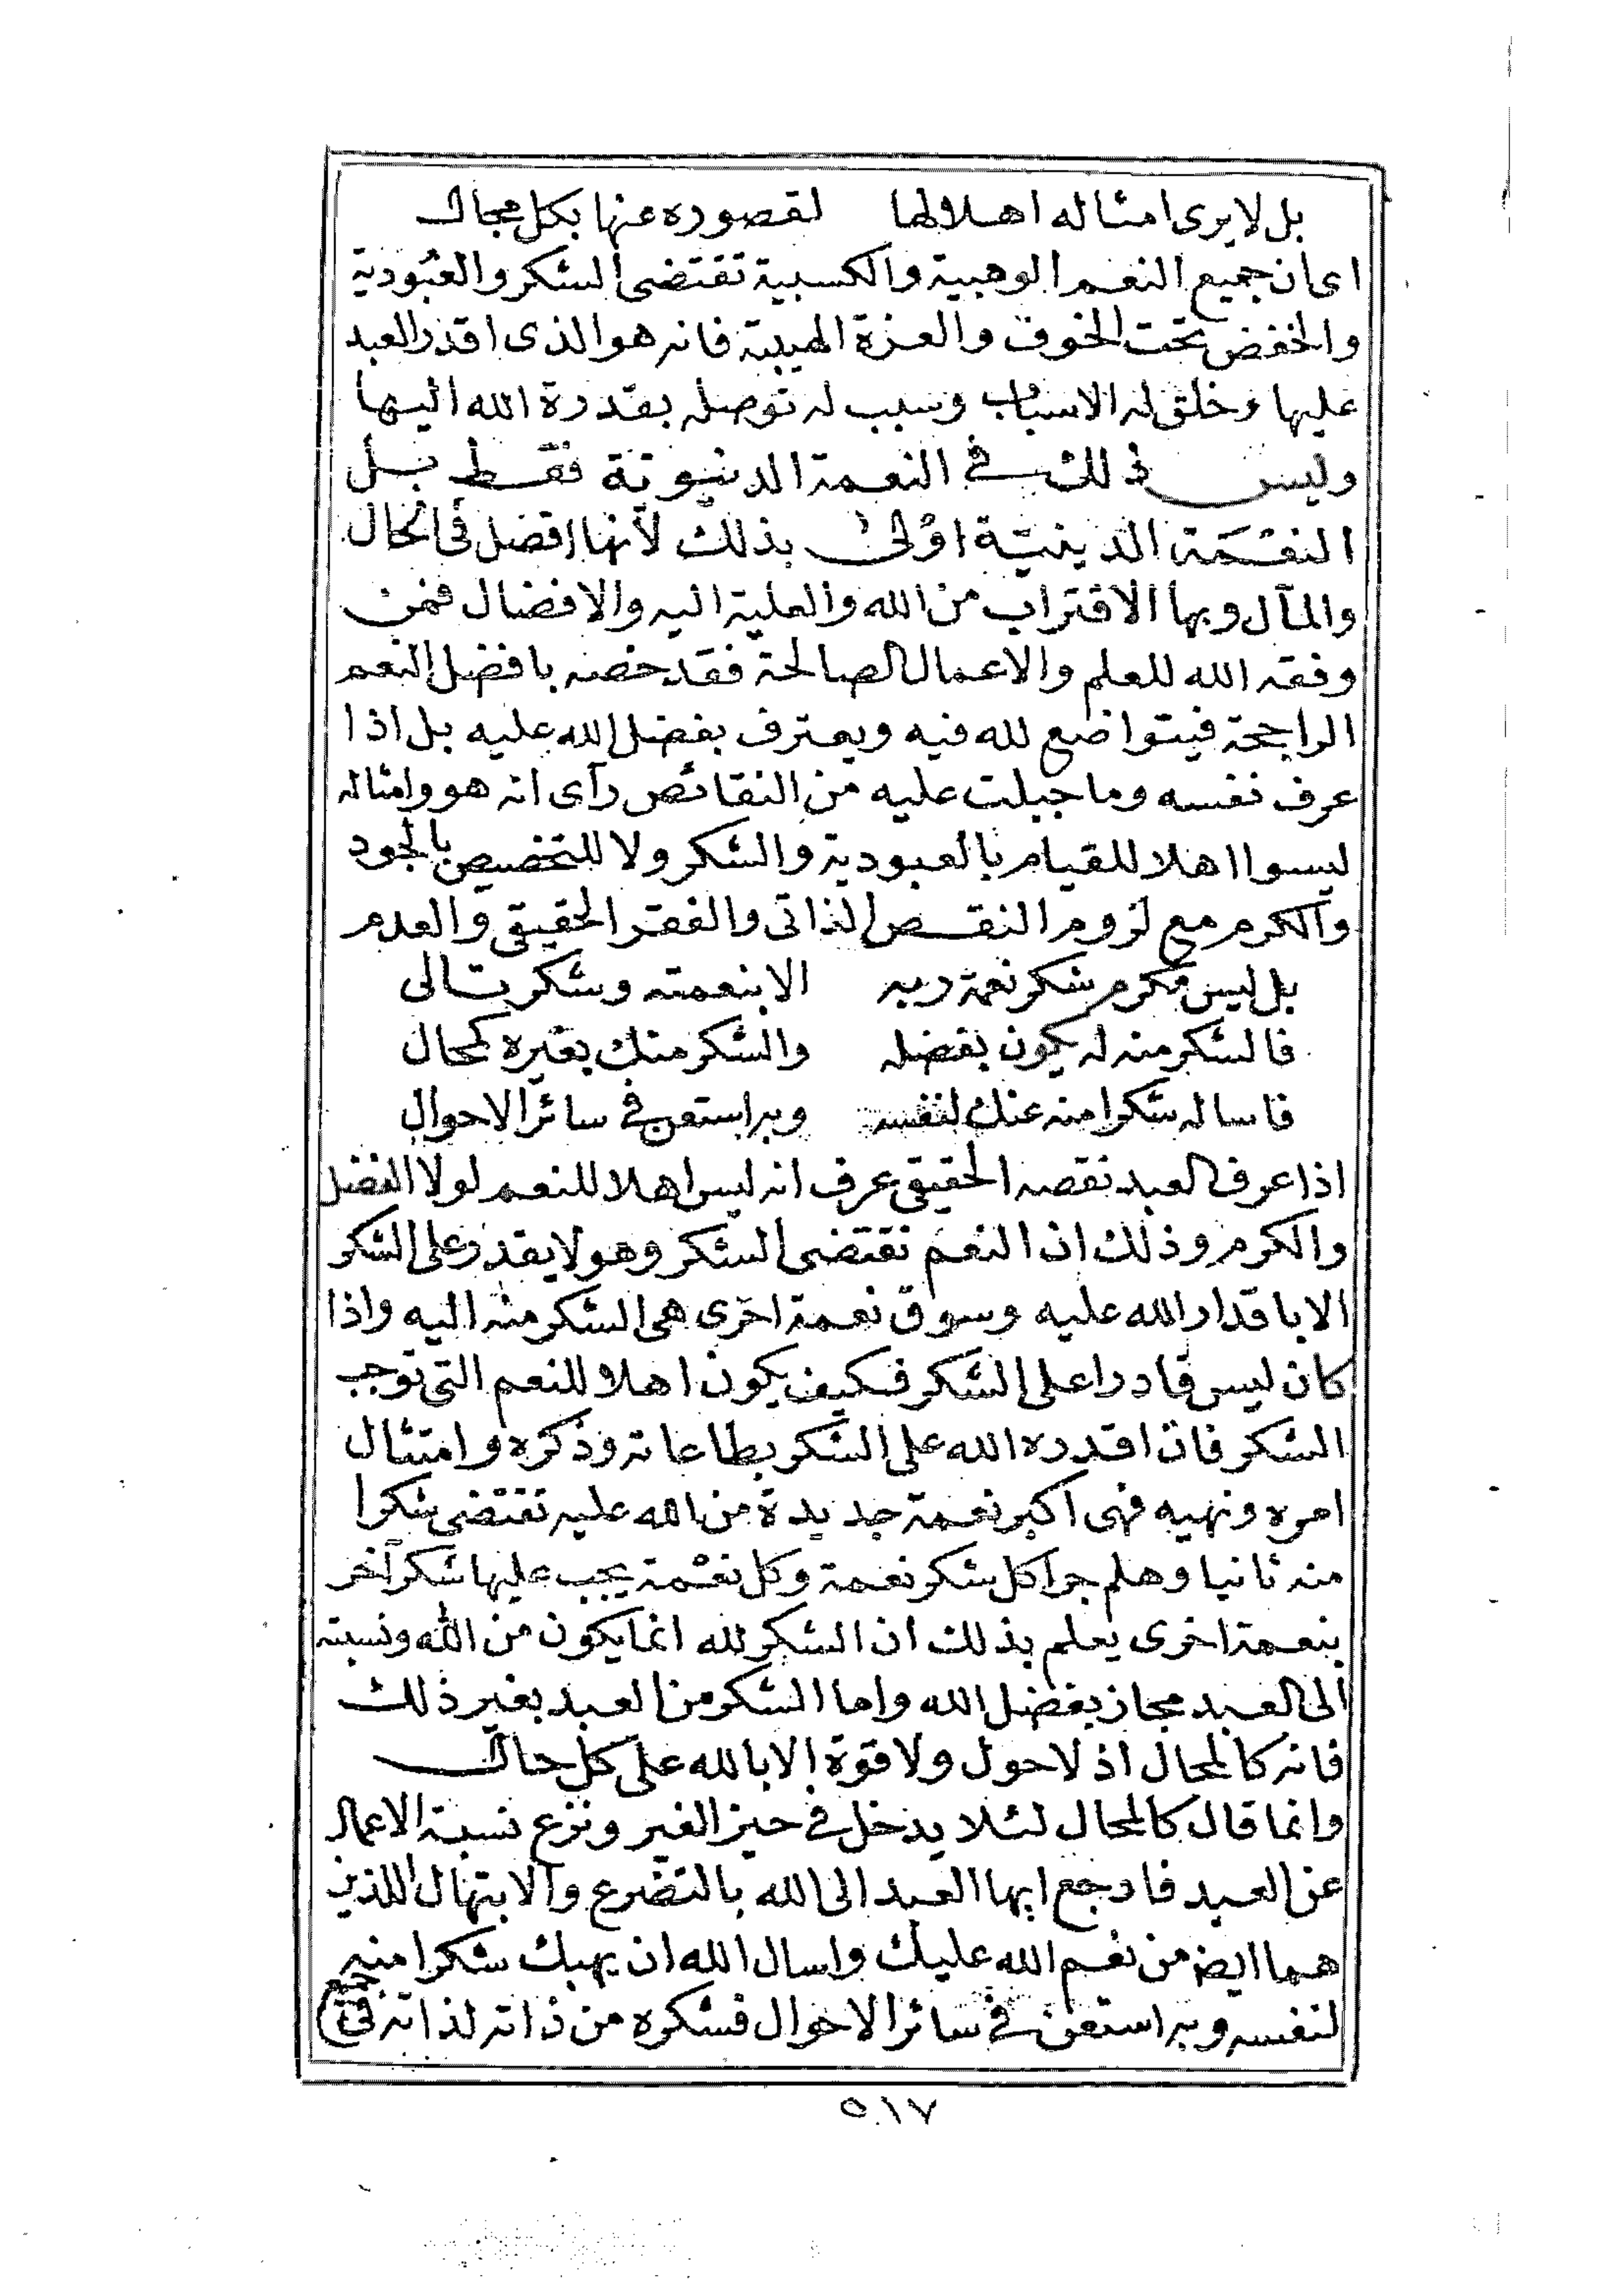 بل لا يرى امثاله اهلا لها لقصوره عنها بكل مجال
اى ان جميع النعم الوهبية والكسبية تقتضى الشكر والعبودية
والخفض تحت الخوف والعزة الهيبية فانه هو الذى اقدر العبد
عليها وخلق له الاسباب وسبب له توصله بقدرة الله اليها
وليس ذلك في النعمة الدنيوية فقط بل
النعمة الدينيّة اولى بذلك لأنها افضل في الحال
والمآل وبها الاقتراب من الله والعلية اليه والافضال فمن
وفقه الله للعلم والاعمال الصالحة فقد خصه بافضل النعم
الراجحة فيتواضع لله فيه ويعترف بفضل الله عليه بل اذا
عرف نفسه وما جبلت عليه من النقائص رآى انه هو وامثاله
ليسوا اهلا للقيام بالعبودية والشكر ولا للتخصيص بالجود
والكرم مع لزوم النقص الذاتى والفقر الحقيقى والعدم
بل ليس مكرم شكر نعمة ربه الا بنعمته وشكر تالى
فالشكر منه له يكون بفضله والشكر منك بغيره كمحال
فاساله شكرا منه عنك لنفسه وبه استعن في سائر الاحوال
اذا عرف العبد نقصه الحقيقى عرف انه ليس اهلا للنعم لولا الفضل
والكرم وذلك ان النعم تقتضى الشكر وهو لا يقدر على الشكر
الا باقدار الله عليه وسوق نعمة اخرى هى الشكر منه اليه واذا
كان ليس قادرا على الشكر فكيف يكون اهلا للنعم التى توجب
الشكر فان اقدره الله على الشكر بطاعاته وذكره وامتثال
امره ونهيه فهى اكبر نعمة جديدة من الله عليه تقتضى شكرا
منه ثانيا وهلم جرا كل شكر نعمة وكل نعمة يجب عليها شكر آخر
بنعمة اخرى يعلم بذلك ان الشكر لله انما يكون من الله ونسبته
الى العبد مجاز بفضل الله واما الشكر من العبد بغير ذلك
فانه كالمحال اذ لا حول ولا قوة الا بالله على كل حال
وانما قال كالمحال لئلا يدخل في حيز الغير ونزع نسبة الاعمال
عن العبد فارجع ايها العبد الى الله بالتضرع والابتهال اللذين
هما ايضا من نعم الله عليك واسال الله ان يهبك شكرا منه
لنفسه وبه استعن في سائر الاحوال فشكره من ذاته لذاته في جميع
٥١٧